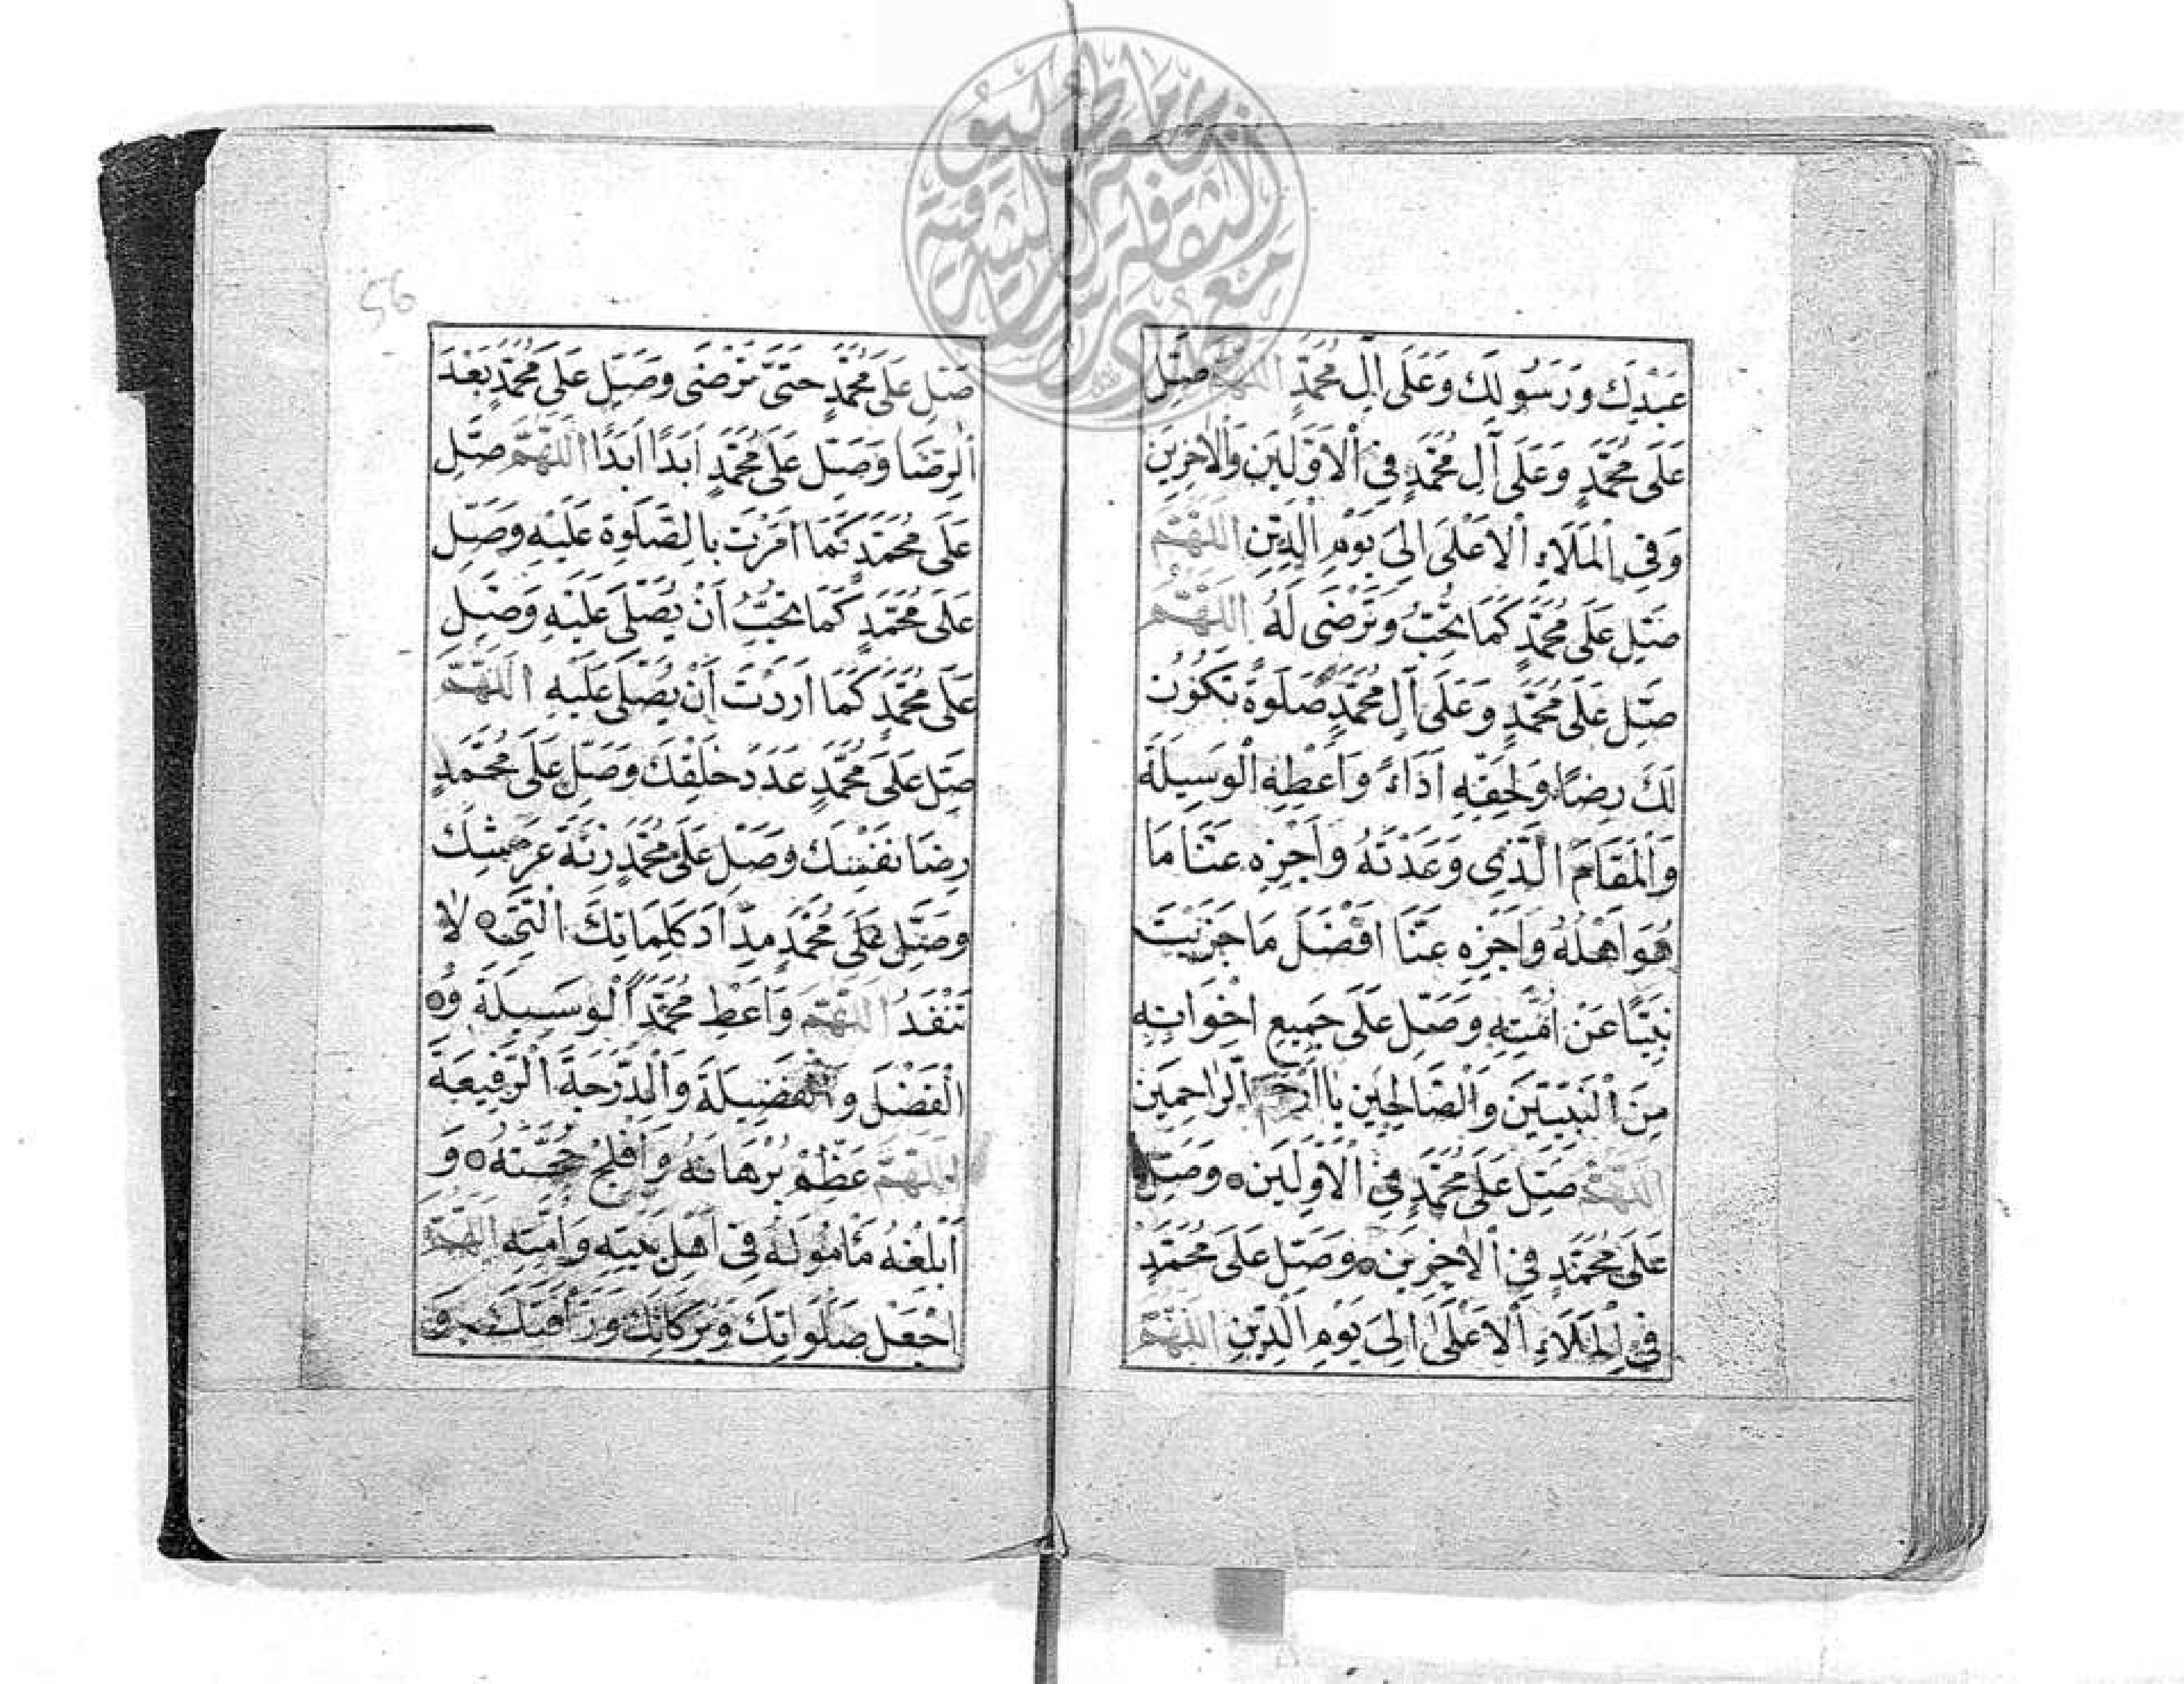 عَبْدِكَ وَرَسُولِكَ وَعَلَى آلِ مُحَمَّدٍ اللهم صَلِّ
عَلَى مُحَمَّدٍ وَعَلَى آلِ مُحَمَّدٍ فِي الْاَوَّلِينَ وَالْاٰخِرِينَ
وَفِي الْمَلَاءِ الْاَعْلَى اِلَى يَوْمِ الدِّينِ اَللّٰهُمَّ
صَلِّ عَلَى مُحَمَّدٍ كَمَا تُحِبُّ وَتَرْضَى لَهُ اَللّٰهُمَّ
صَلِّ عَلَى مُحَمَّدٍ وَعَلَى آلِ مُحَمَّدٍ صَلَوةً تَكُونُ
لَكَ رِضًا وَلِحَقِّهِ اَدَاءً وَاَعْطِهِ الْوَسِيلَةَ
وَالْمَقَامَ الَّذِي وَعَدْتَهُ وَاَجْزِهِ عَنَّا مَا
هُوَ اَهْلُهُ وَاَجْزِهِ عَنَّا اَفْضَلَ مَا جَزَيْتَ
نَبِيًّا عَنْ اُمَّتِهِ وَصَلِّ عَلَى جَمِيعِ اِخْوَانِهِ
مِنَ النَّبِيِّينَ وَالصَّالِحِينَ يَا اَرْحَمَ الرَّاحِمِينَ
اَللّٰهُمَّ صَلِّ عَلَى مُحَمَّدٍ فِي الْاَوَّلِينَ وَصَلِّ
عَلَى مُحَمَّدٍ فِي الْاٰخِرِينَ وَصَلِّ عَلَى مُحَمَّدٍ
فِي الْمَلَاءِ الْاَعْلَى اِلَى يَوْمِ الدِّينِ اَللّٰهُمَّ
56
صَلِّ عَلَى مُحَمَّدٍ حَتَّى تَرْضَى وَصَلِّ عَلَى مُحَمَّدٍ بَعْدَ
الرِّضَا وَصَلِّ عَلَى مُحَمَّدٍ اَبَدًا اَبَدًا اَللّٰهُمَّ صَلِّ
عَلَى مُحَمَّدٍ كَمَا اَمَرْتَ بِالصَّلَوةِ عَلَيْهِ وَصَلِّ
عَلَى مُحَمَّدٍ كَمَا تُحِبُّ اَنْ يُصَلَّى عَلَيْهِ وَصَلِّ
عَلَى مُحَمَّدٍ كَمَا اَرَدْتَ اَنْ يُصَلَّى عَلَيْهِ اَللّٰهُمَّ
صَلِّ عَلَى مُحَمَّدٍ عَدَدَ خَلْقِكَ وَصَلِّ عَلَى مُحَمَّدٍ
رِضَا نَفْسِكَ وَصَلِّ عَلَى مُحَمَّدٍ زِنَةَ عَرْشِكَ
وَصَلِّ عَلَى مُحَمَّدٍ مِدَادَ كَلِمَاتِكَ الَّتِي لَا
تَنْفَدُ اَللّٰهُمَّ وَاَعْطِ مُحَمَّدًا الْوَسِيلَةَ وَ
الْفَضْلَ وَالْفَضِيلَةَ وَالدَّرَجَةَ الرَّفِيعَةَ
اَللّٰهُمَّ عَظِّمْ بُرْهَانَهُ وَاَفْلِجْ حُجَّتَهُ وَ
اَبْلِغْهُ مَأْمُولَهُ فِي اَهْلِ بَيْتِهِ وَاُمَّتِهِ اَللّٰهُمَّ
اجْعَلْ صَلَوَاتِكَ وَبَرَكَاتِكَ وَرَأْفَتَكَ وَ